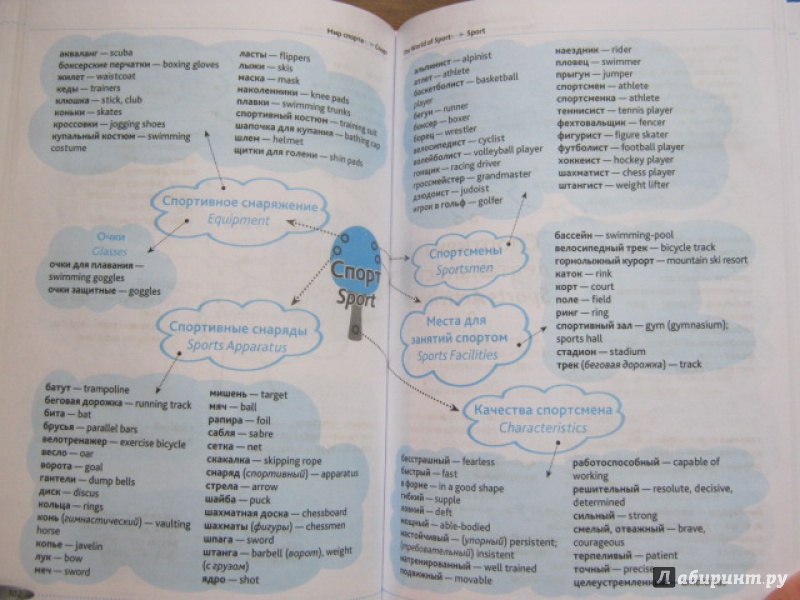 Мир спорта
акваланг — scuba
боксерские перчатки — boxing gloves
жилет — waistcoat
кеды — trainers
клюшка — stick, club
коньки — skates
кроссовки — jogging shoes
купальный костюм — swimming
costume
ласты — flippers
лыжи — skis
маска — mask
наколенники — knee pads
плавки — swimming trunks
спортивный костюм — training suit
шапочка для купания — bathing cap
шлем — helmet
щитки для голени — shin pads
Спортивное снаряжение
Equipment
Очки
Glasses
очки для плавания —
swimming goggles
очки защитные — goggles
Спортивные снаряды
Sports Apparatus
батут — trampoline
беговая дорожка — running track
бита — bat
брусья — parallel bars
велотренажер — exercise bicycle
весло — oar
ворота — goal
гантели — dump bells
диск — discus
кольца — rings
конь (гимнастический) — vaulting
horse
копье — javelin
лук — bow
меч — sword
мишень — target
мяч — ball
рапира — foil
сабля — sabre
сетка — net
скакалка — skipping rope
снаряд (спортивный) — apparatus
стрела — arrow
шайба — puck
шахматная доска — chessboard
шахматы (фигуры) — chessmen
шпага — sword
штанга — barbell (ворот), weight
(с грузом)
ядро — shot
Спорт
Sport
he World of Sport Sport
альпинист — alpinist
атлет — athlete
баскетболист — basketball
player
бегун — runner
боксер — boxer
борец — wrestler
велосипедист — cyclist
волейболист — volleyball player
гонщик — racing driver
гроссмейстер — grandmaster
дзюдоист — judoist
игрок в гольф — golfer
наездник — rider
пловец — swimmer
прыгун — jumper
спортсмен — athlete
спортсменка — athlete
теннисист — tennis player
фехтовальщик — fencer
фигурист — figure skater
футболист — football player
хоккеист — hockey player
шахматист — chess player
штангист — weight lifter
Спортсмены
Sportsmen
Места для
занятий спортом
Sports Facilities
бассейн — swimming-pool
велосипедный трек — bicycle track
горнолыжный курорт — mountain ski resort
каток — rink
корт — court
поле — field
ринг — ring
спортивный зал — gym (gymnasium);
sports hall
стадион — stadium
трек (беговая дорожка) — track
Качества спортсмена
Characteristics
бесстрашный — fearless
быстрый — fast
в форме — in a good shape
гибкий — supple
ловкий — deft
мощный — able-bodied
настойчивый — (упорный) persistent;
(требовательный) insistent
натренированный — well trained
подвижный — movable
работоспособный — capable of
working
решительный — resolute, decisive,
determined
сильный — strong
смелый, отважный — brave,
courageous
терпеливый — patient
точный — precise
целеустремленн
Лабиринт.ру